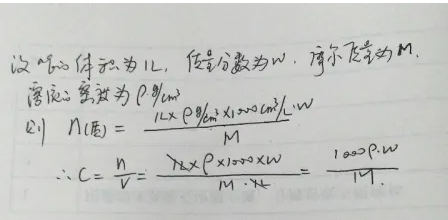 设溶液体积为1L,质量分数为w,摩尔质量为M,
溶液的密度为ρ g/cm³
则 n(质) = 1L×ρ g/cm³×1000cm³/L·w / M
∴ C = n/V = 1L×ρ×1000×w / M·1L = 1000ρ·w / M.